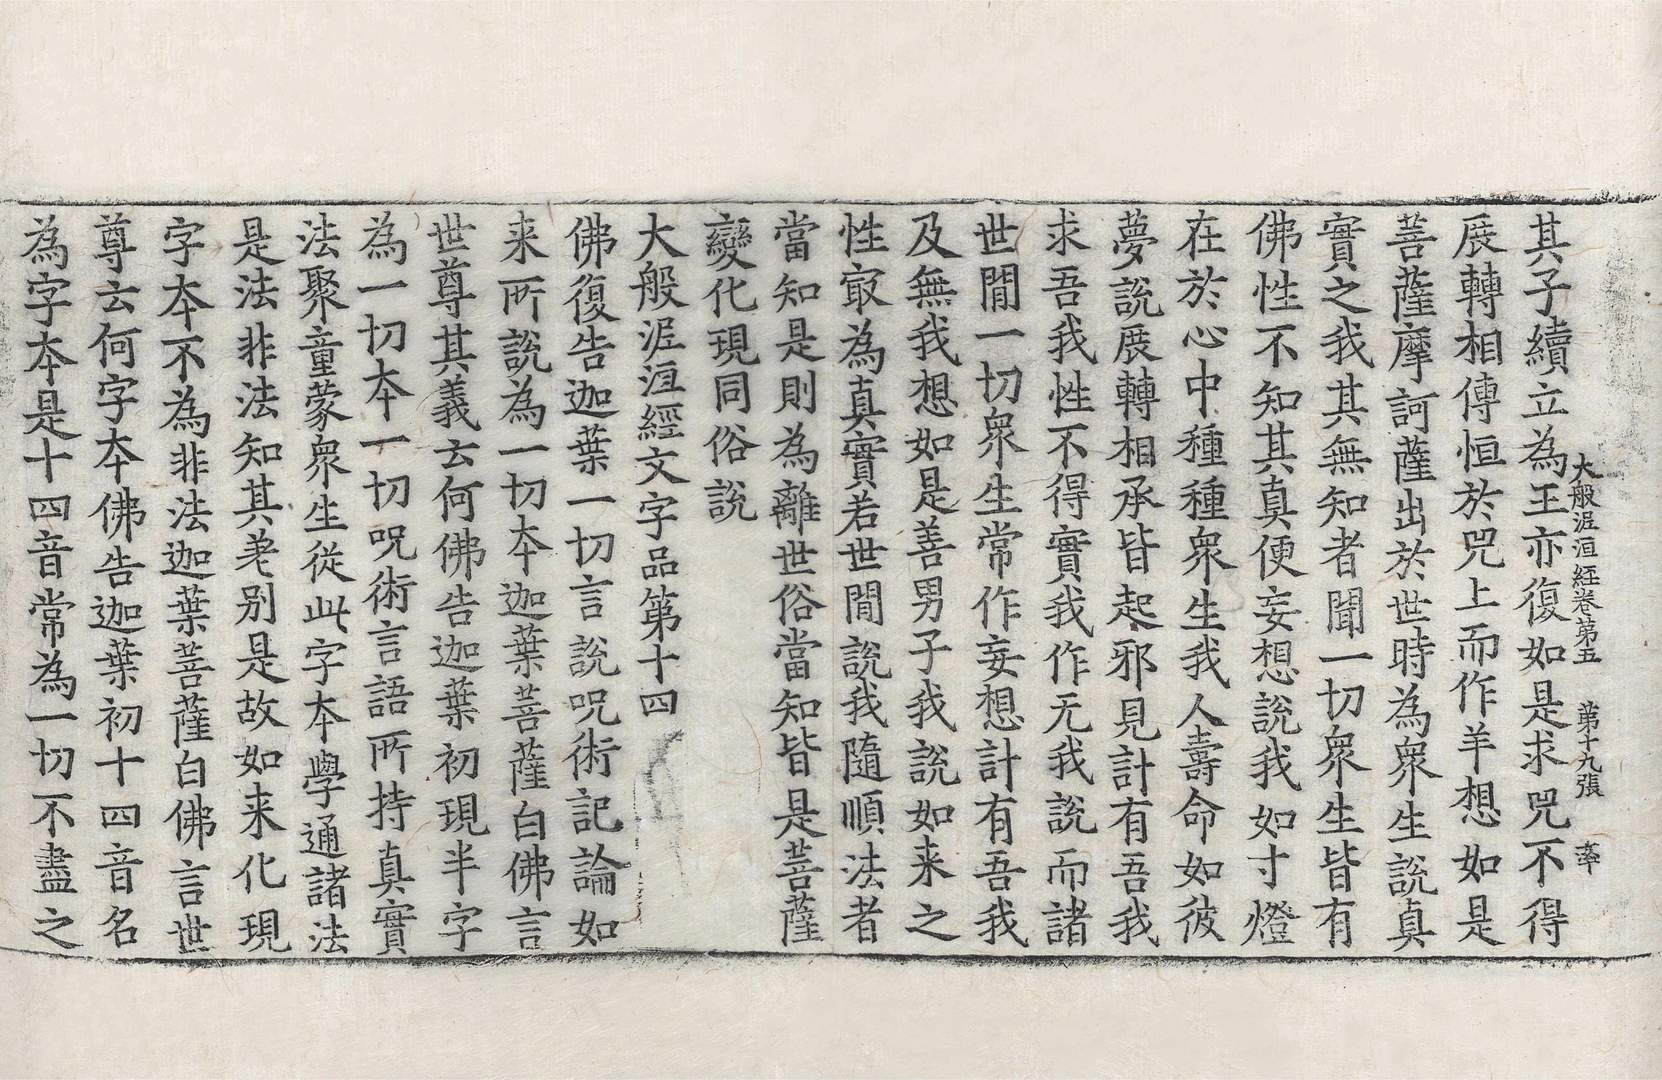 大般泥洹經卷第五 第十九張 率
其子續立為王亦復如是求兕不得
展轉相傳恒於兕上而作羊想如是
菩薩摩訶薩出於世時為衆生說真
實之我其無知者聞一切衆生皆有
佛性不知其真便妄想說我如寸燈
在於心中種種衆生我人壽命如彼
夢說展轉相承皆起邪見計有吾我
求吾我性不得實我作无我說而諸
世間一切衆生常作妄想計有吾我
及無我想如是善男子我說如来之
性㝡為真實若世間說我隨順法者
當知是則為離世俗當知皆是菩薩
變化現同俗說
大般泥洹經文字品第十四
佛復告迦葉一切言說呪術記論如
来所說為一切夲迦葉菩薩白佛言
世尊其義云何佛告迦葉初現半字
為一切夲一切呪術言語所持真實
法聚童蒙衆生從此字夲學通諸法
是法非法知其差別是故如来化現
字夲不為非法迦葉菩薩白佛言世
尊云何字夲佛告迦葉初十四音名
為字夲是十四音常為一切不盡之